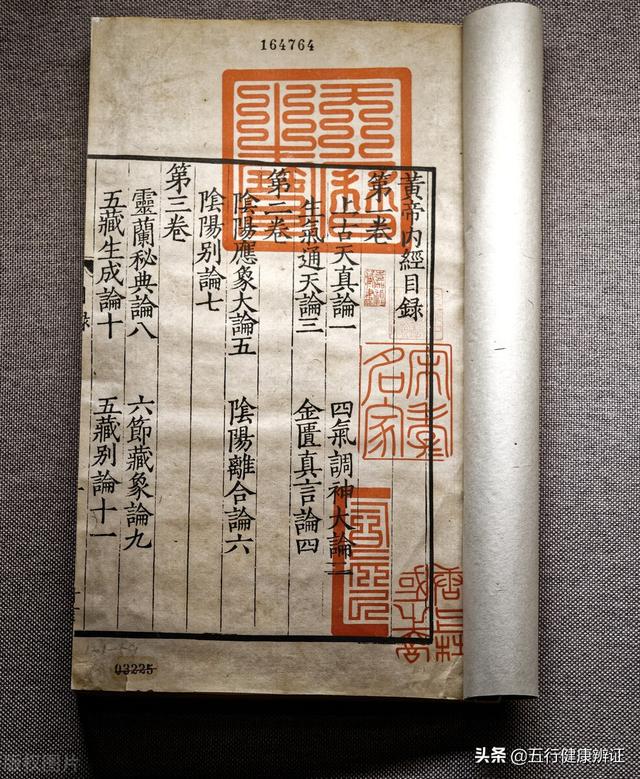 164764
黃帝內經目錄
第一卷
上古天真論一　四氣調神大論二
生氣通天論三　金匱真言論四
第二卷
陰陽應象大論五　陰陽離合論六
陰陽别論七
第三卷
靈蘭秘典論八　六節藏象論九
五藏生成論十　五藏别論十一
03225
版权图片
头条 @五行健康辨证